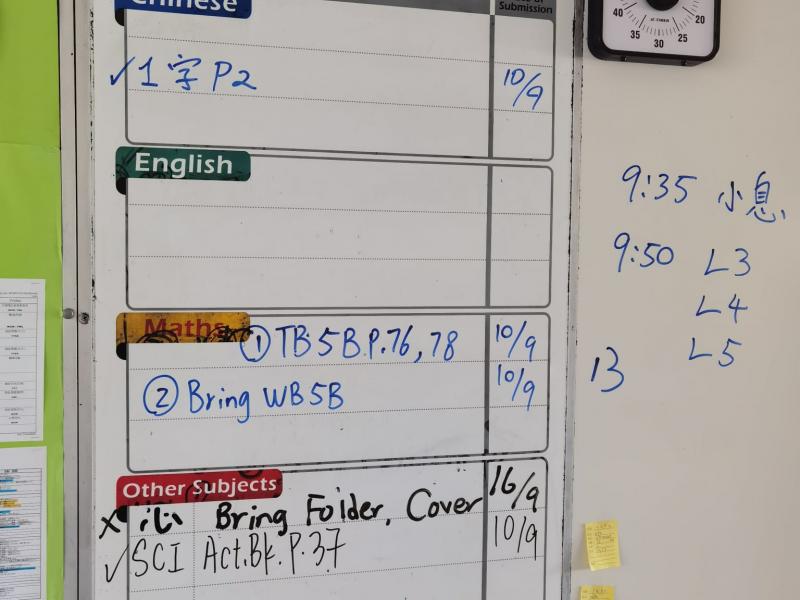 Chinese
Submission
✓ 1 字 P2 10/9
English
Maths
① TB 5B.P.76, 78 10/9
② Bring WB 5B 10/9
Other Subjects
x 心 Bring Folder, Cover 16/9
✓ SCI Act.Bk.P.37 10/9
40 35 30 25 20
9:35 小息
9:50 L3
L4
L5
13